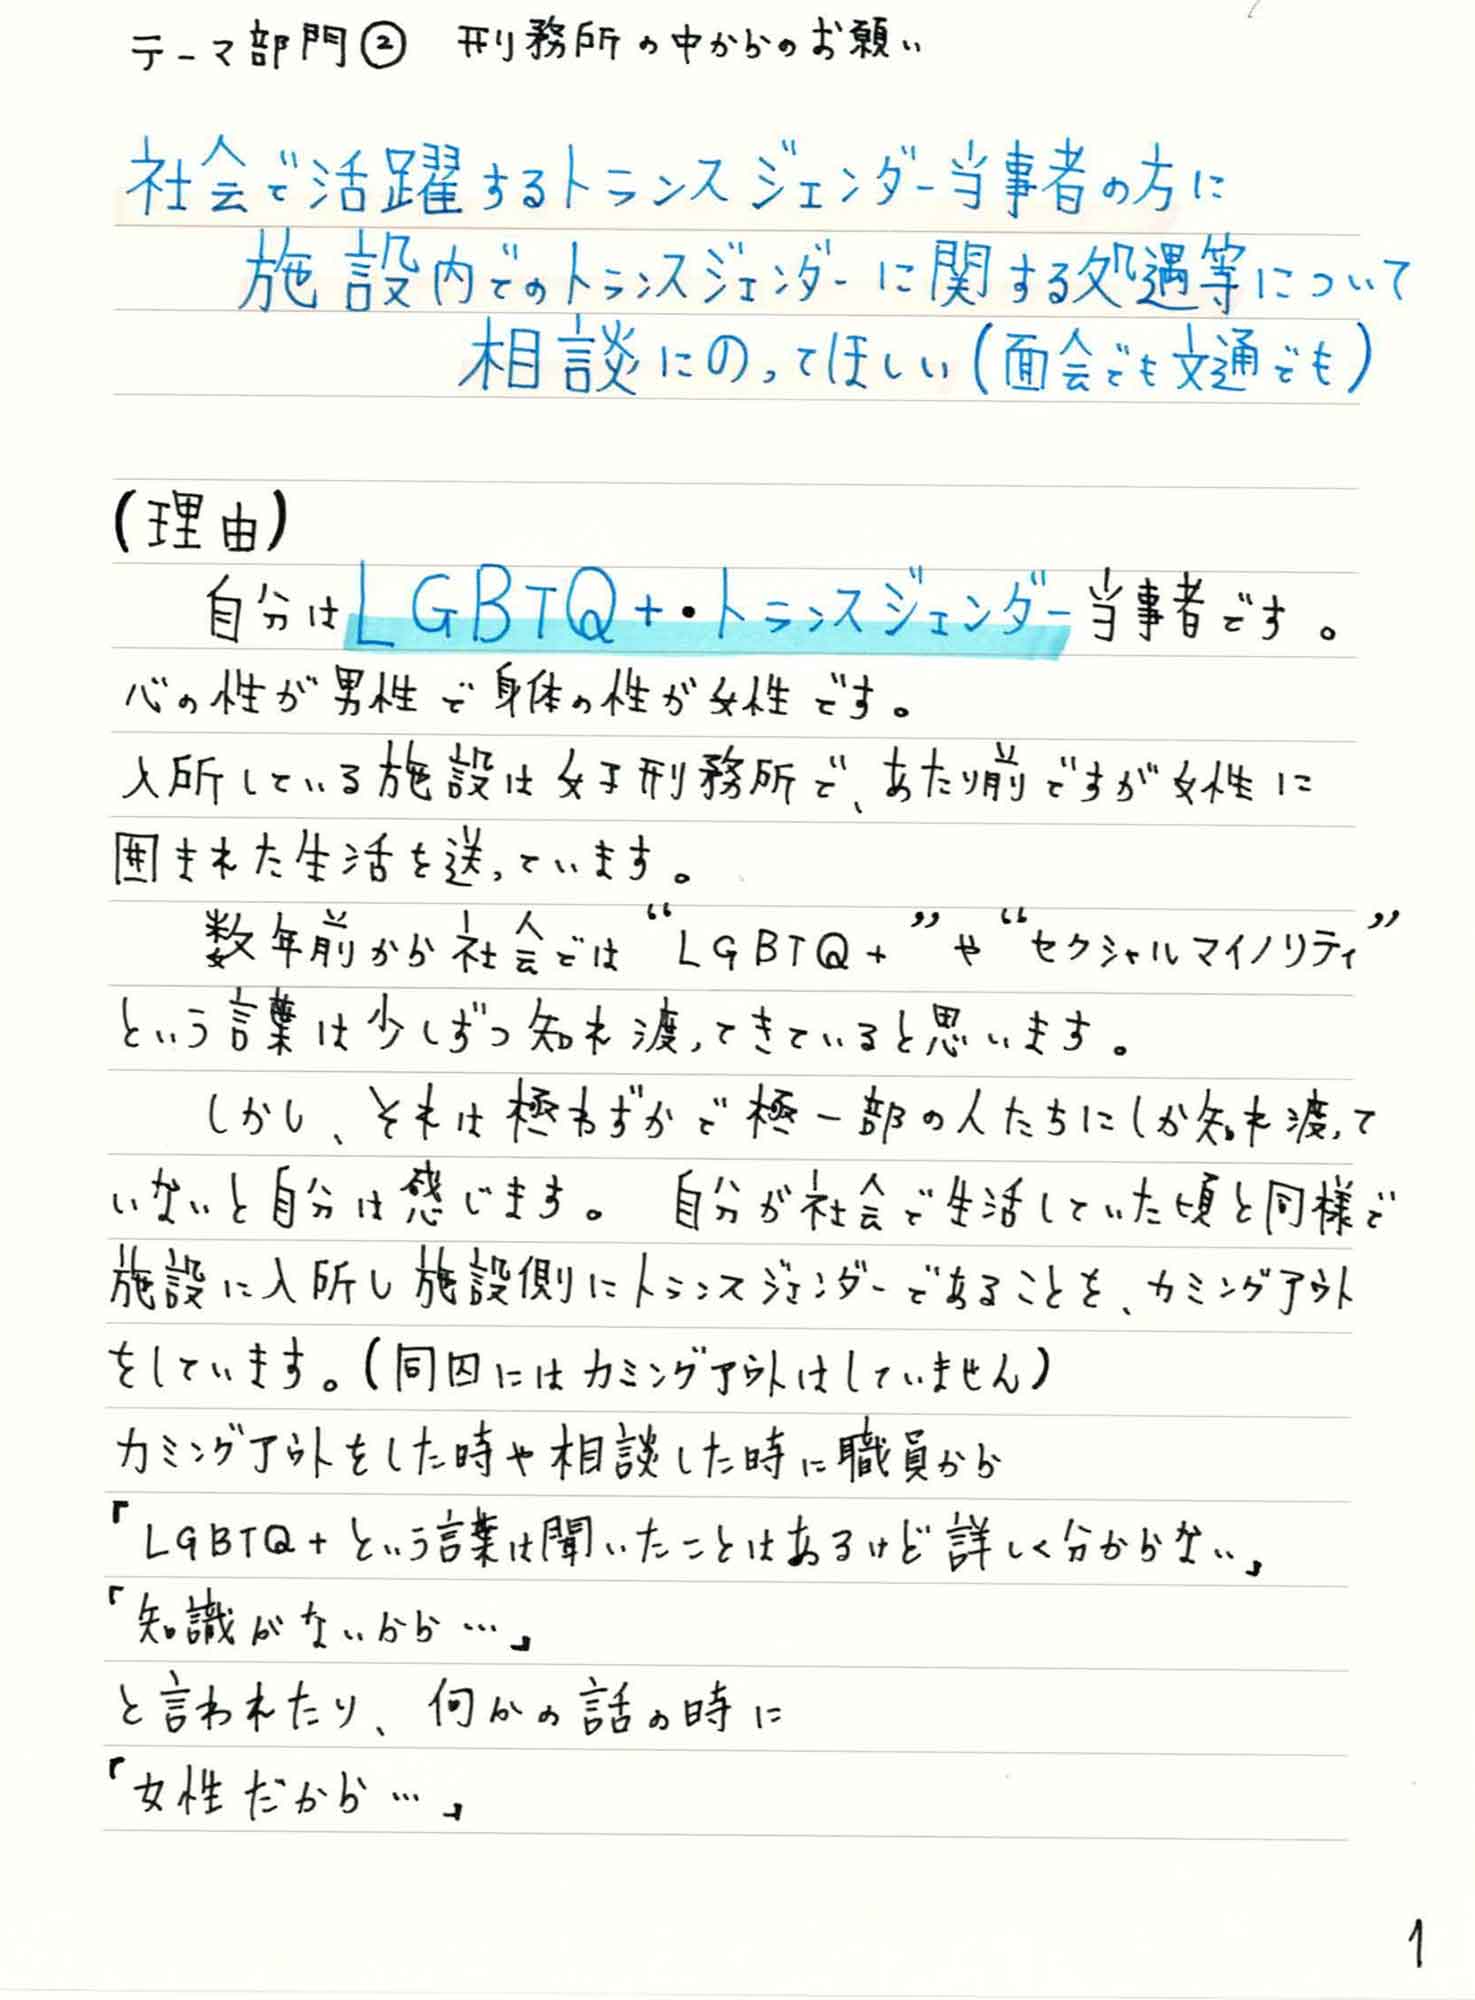 テーマ部門② 刑務所の中からのお願い
社会で活躍するトランスジェンダー当事者の方に
施設内でのトランスジェンダーに関する処遇等について
相談にのってほしい(面会でも文通でも)
(理由)
自分はLGBTQ+・トランスジェンダー当事者です。
心の性が男性で身体の性が女性です。
入所している施設は女子刑務所で、あたり前ですが女性に
囲まれた生活を送っています。
数年前から社会では“LGBTQ+”や“セクシャルマイノリティ”
という言葉は少しずつ知れ渡ってきていると思います。
しかし、それは極わずかで極一部の人たちにしか知れ渡って
いないと自分は感じます。 自分が社会で生活していた頃と同様で
施設に入所し施設側にトランスジェンダーであることを、カミングアウト
をしています。(同囚にはカミングアウトはしていません)
カミングアウトをした時や相談した時に職員から
「LGBTQ+という言葉は聞いたことはあるけど詳しく分からない」
「知識がないから…」
と言われたり、何かの話の時に
「女性だから…」
1